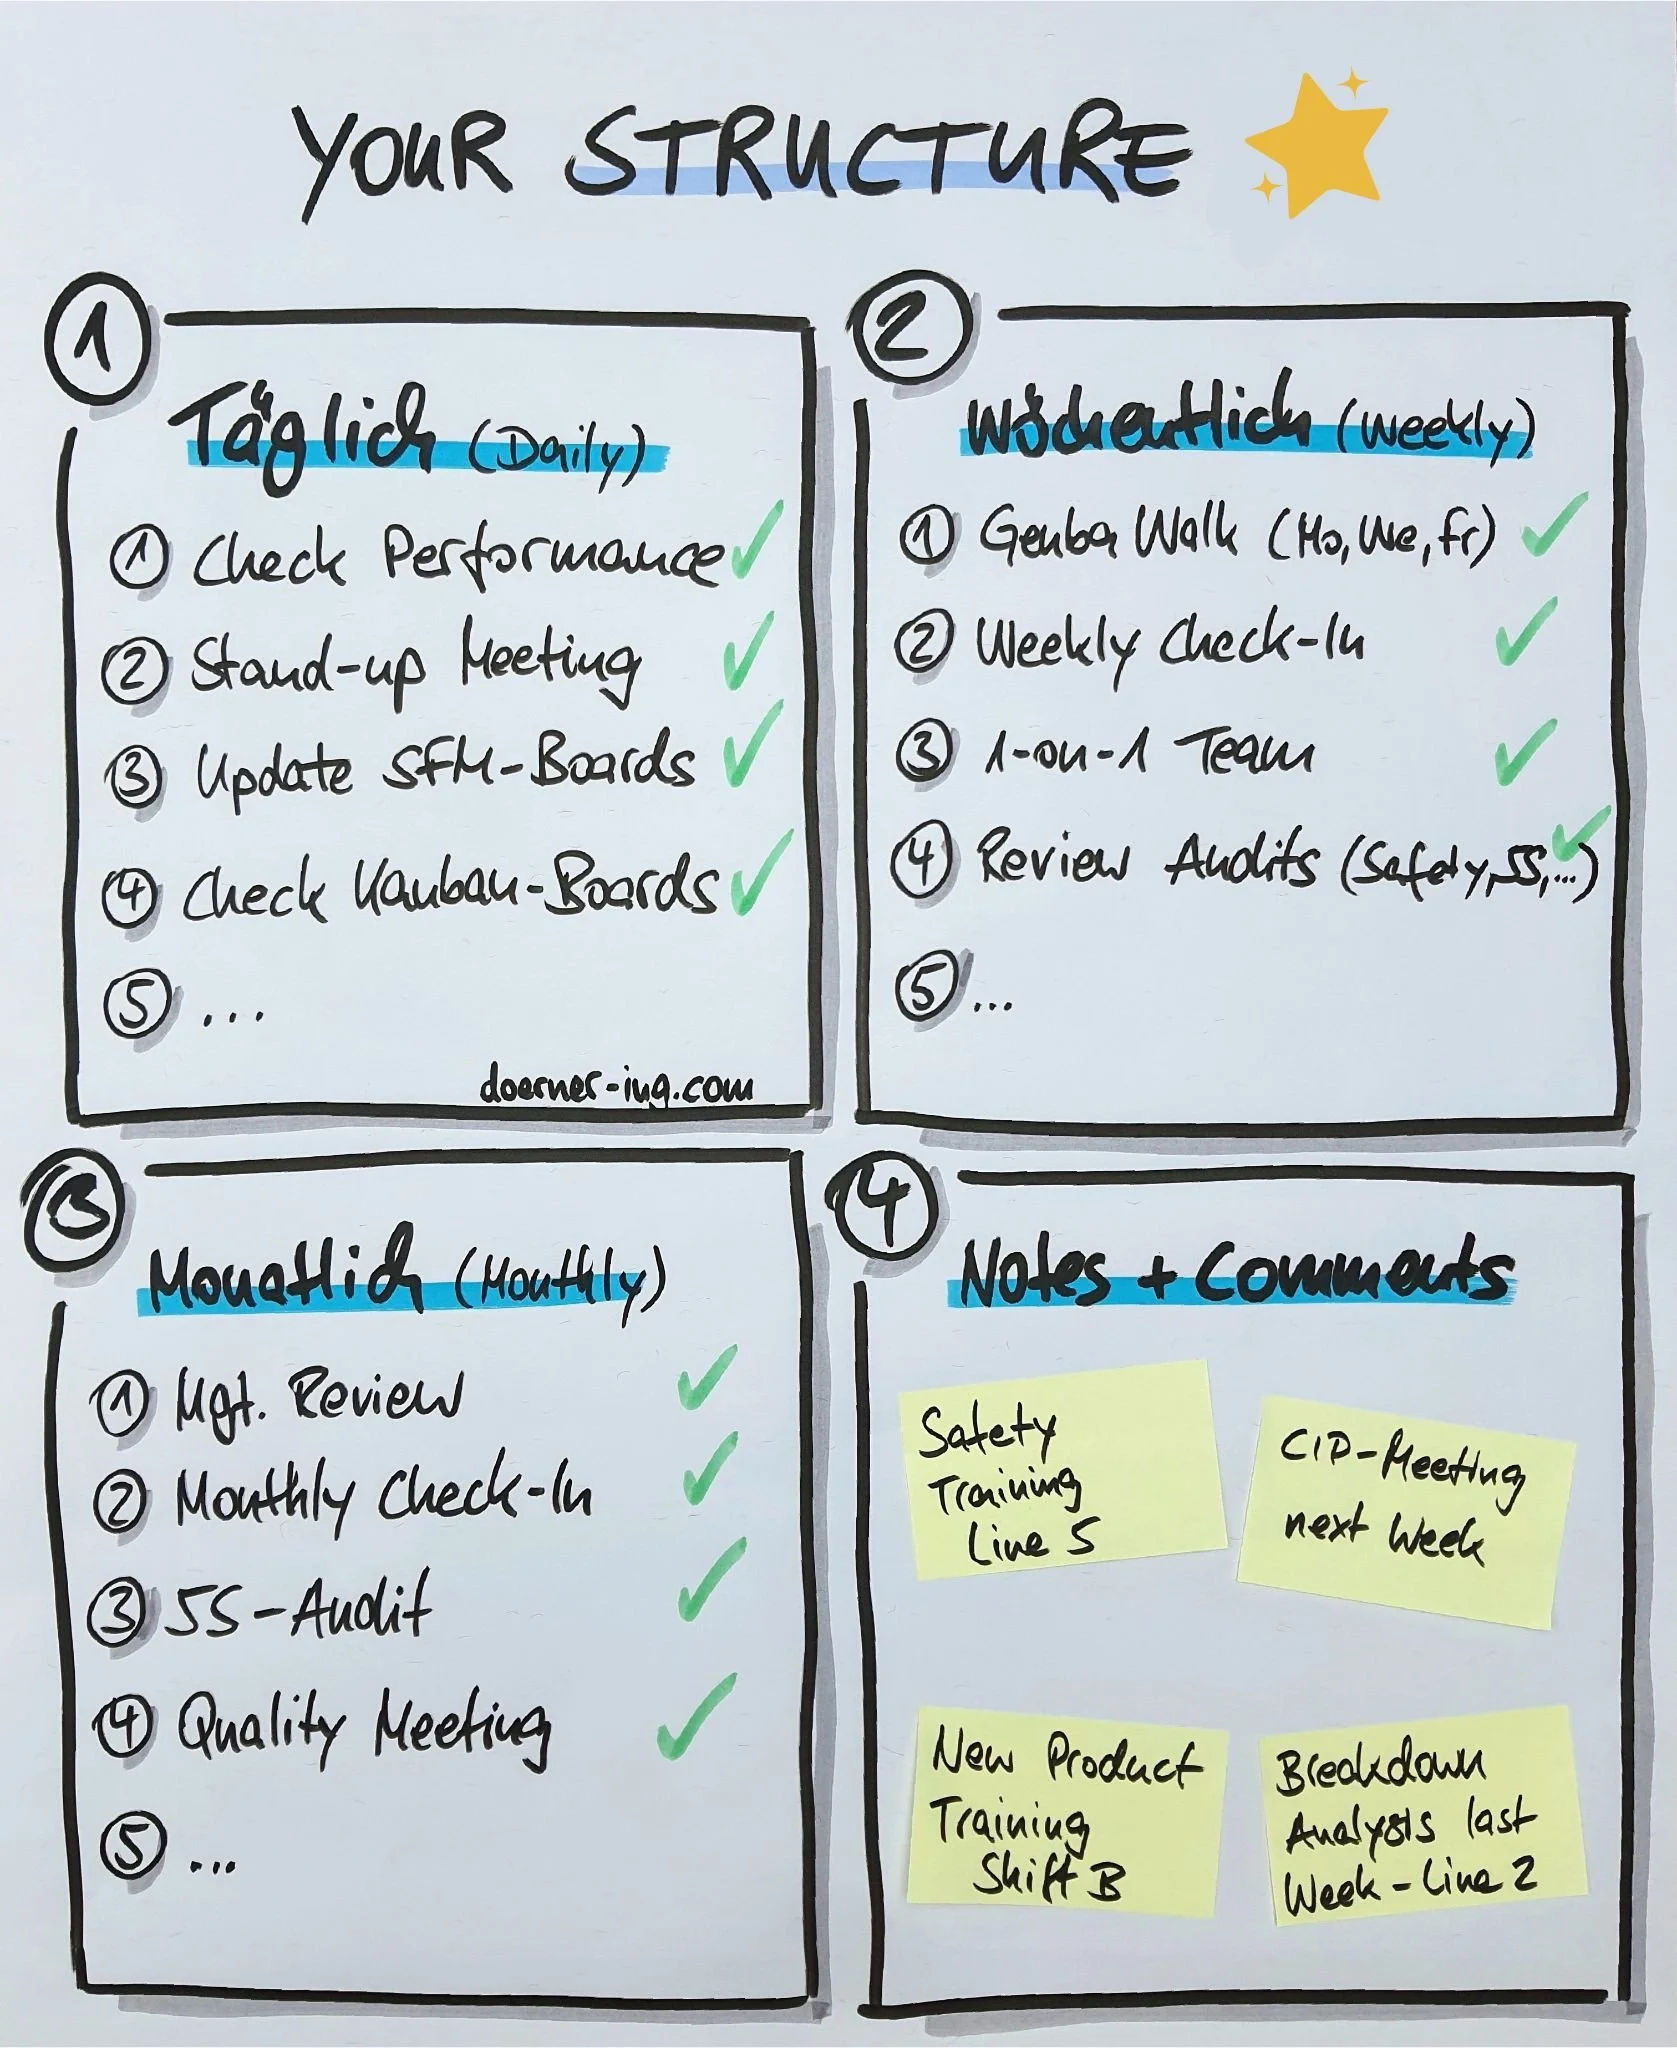 YOUR STRUCTURE
1
Täglich (Daily)
1 Check Performance
2 Stand-up Meeting
3 Update SFM-Boards
4 Check Kanban-Boards
5 ...
doerner-ing.com
2
Wöchentlich (Weekly)
1 Genba Walk (Mo, We, Fr)
2 Weekly Check-In
3 1-on-1 Team
4 Review Audits (Safety, 5S, ...)
5 ...
3
Monatlich (Monthly)
1 Mgt. Review
2 Monthly Check-In
3 5S-Audit
4 Quality Meeting
5 ...
4
Notes + Comments
Safety
Training
Line 5
CIP-Meeting
next Week
New Product
Training
Shift B
Breakdown
Analysis last
Week - Line 2